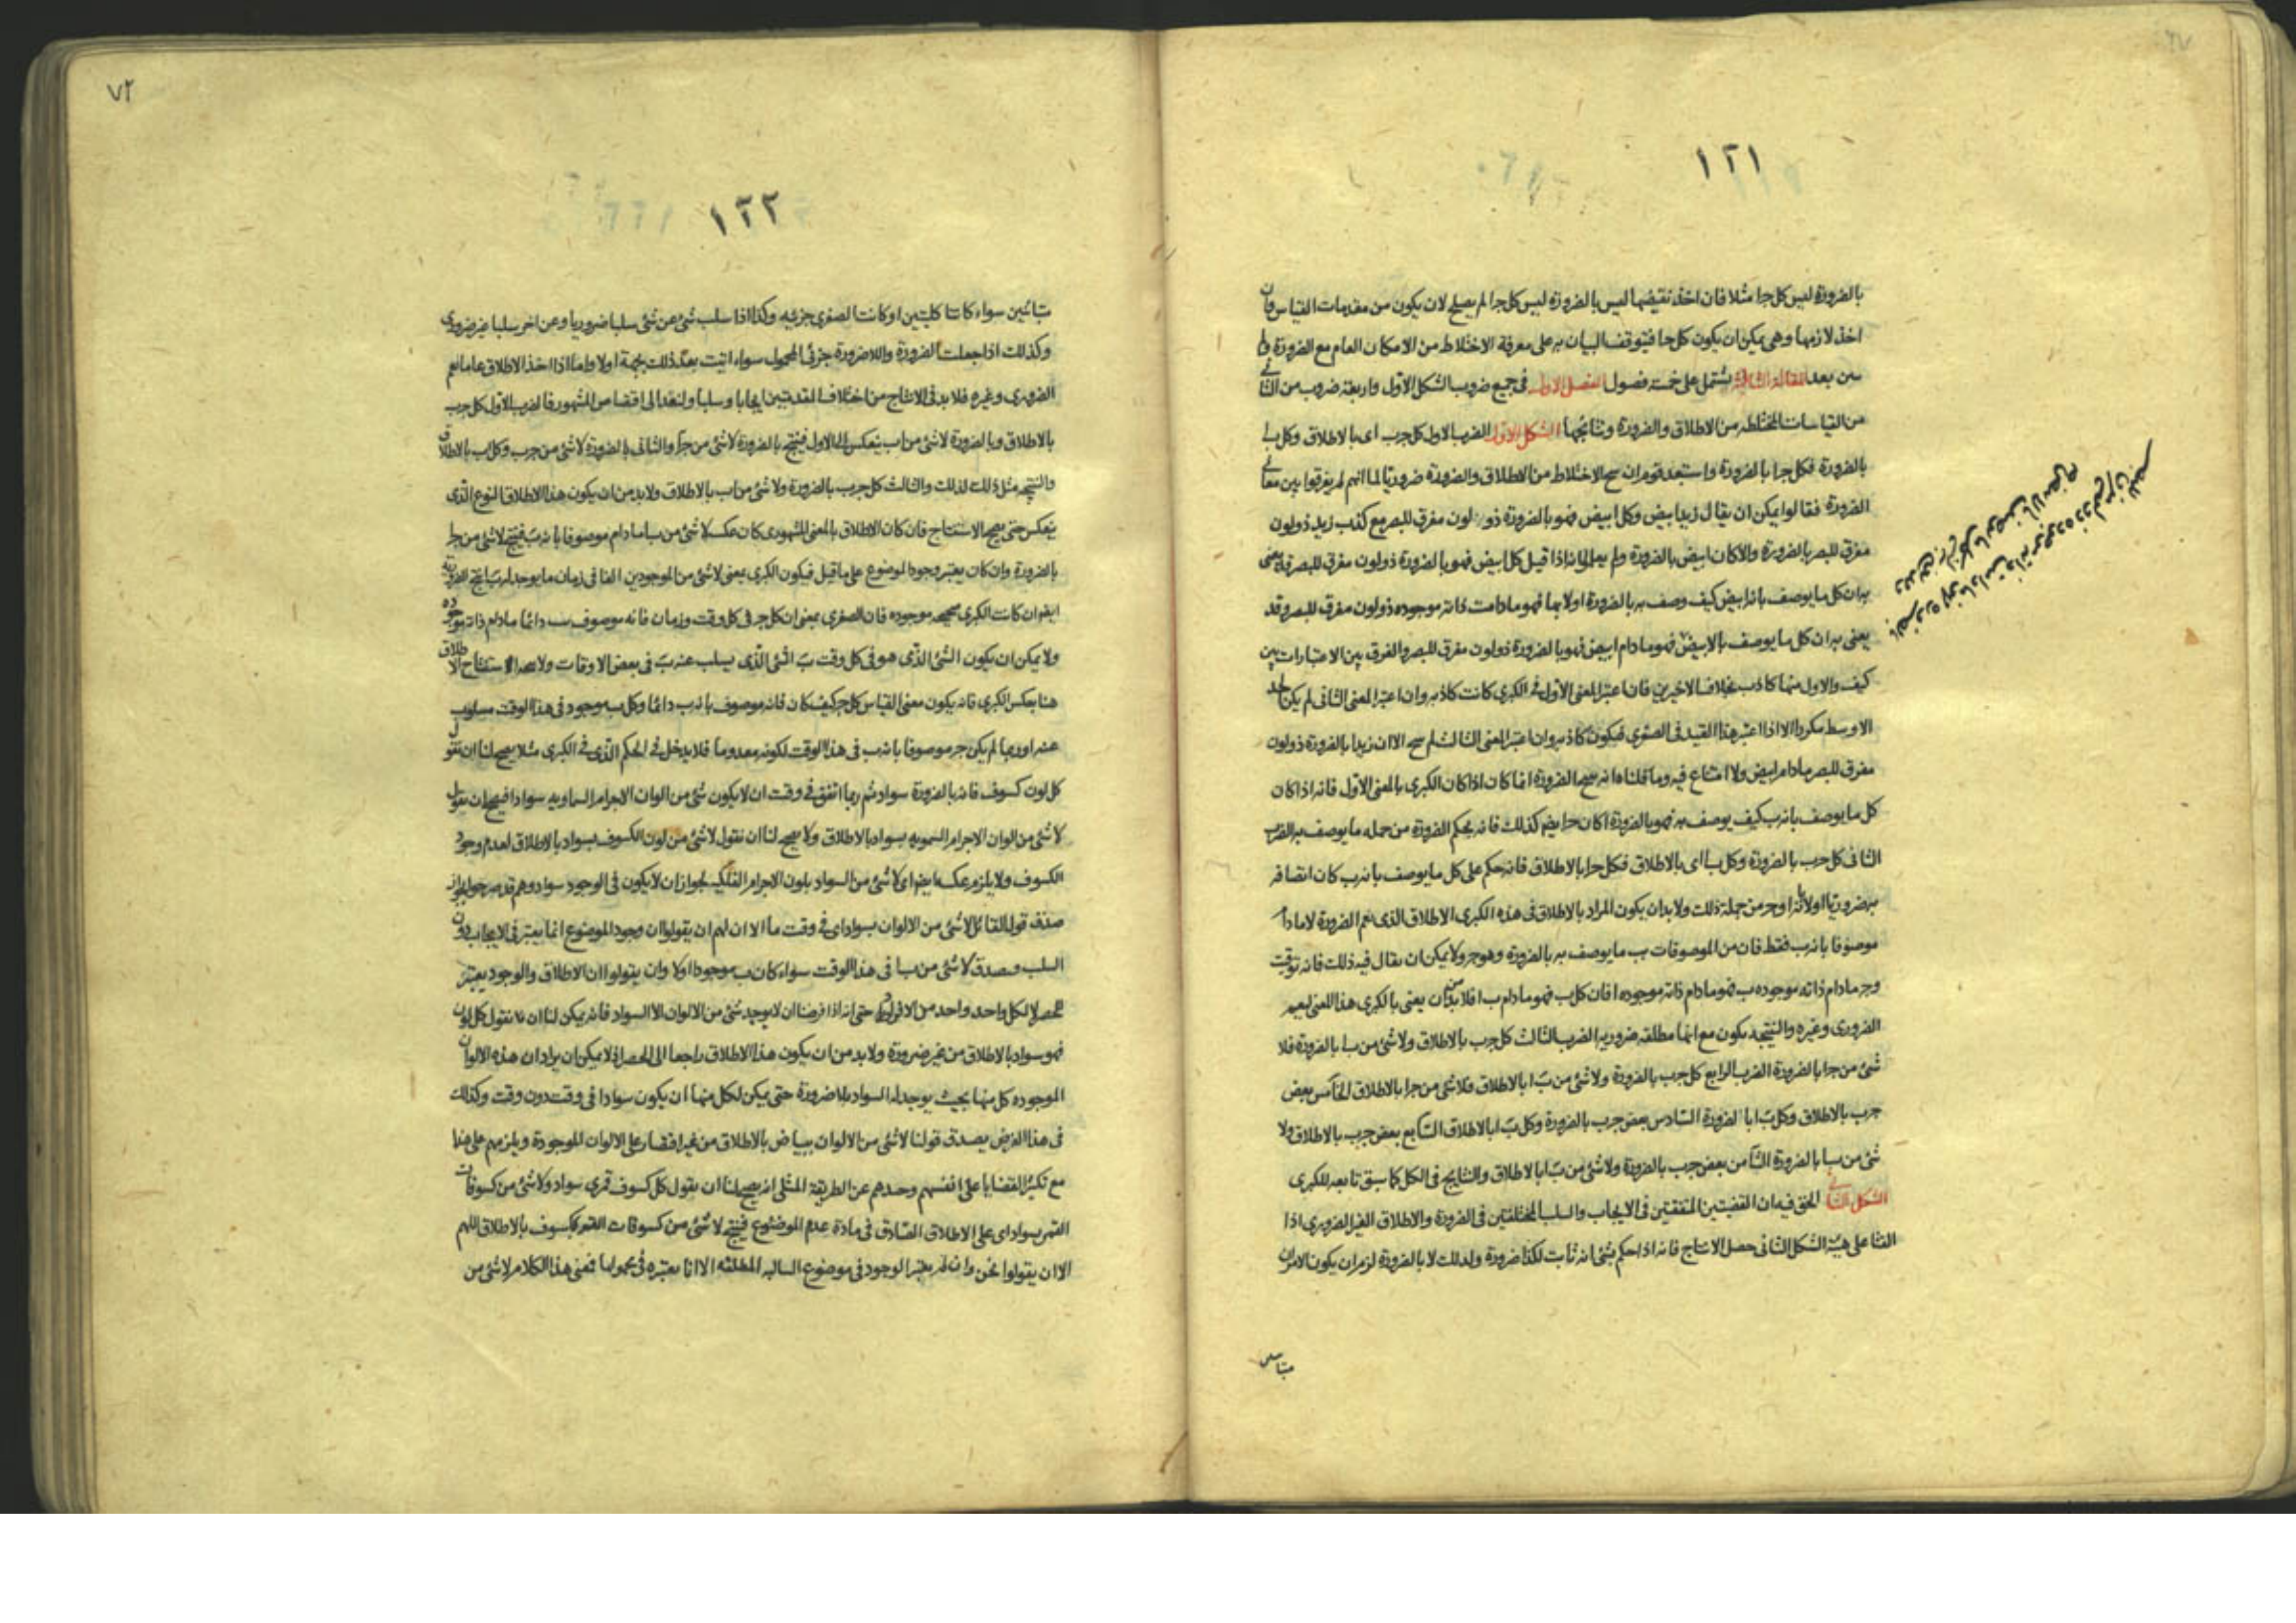 ١٢١
بالضرورة ليس كل جا مثلا فان اخذ نقيضها ليس بالضرورة ليس كل جا لم يصلح لان يكون من مقدمات القياس فان
اخذ لازمها وهى يمكن ان يكون كل جا فيتوقف البيان به على معرفة الاختلاط من الامكان العام مع الضرورة
بعد المقالة الثالثة يشتمل على خمسة فصول الفصل الاول فى جميع ضروب الشكل الاول واربعة ضروب من الثانى
من القياسات المختلطه من الاطلاق والضرورة ونتائجها الشكل الاول الضرب الاول كل جب اى بالاطلاق وكل با
بالضرورة فكل جا بالضرورة واستبعد قوم ان الاختلاط من الاطلاق والضرورة ضروريا لما انهم لم يفرقوا بين معانى
الضرورة فقالوا يمكن ان يقال زيد ابيض وكل ابيض فهو بالضرورة ذو لون مفرق للبصر مع كذب زيد ذو لون
مفرق للبصر بالضرورة والا كان ابيض بالضرورة ولم يعلموا انه اذا قيل كل ابيض فهو بالضرورة ذو لون مفرق للبصر يعنى
به ان كل ما يوصف بانه ابيض كيف وصف به بالضرورة او لا بها فهو ما دامت ذاته موجوده ذو لون مفرق للبصر وقد
يعنى به ان كل ما يوصف بالابيض فهو ما دام ابيض فهو بالضرورة ذو لون مفرق للبصر والفرق بين الاعتبارات بين
كيف والاول منها كاذب بخلاف الاخيرين فان اعتبر المعنى الاول فى الكبرى كانت كاذبه وان اعتبر المعنى الثانى لم يكن الحد
الاوسط مكررا الا اذا اعتبر هذا القيد فى الصغرى فيكون كاذبه وان اعتبر المعنى الثالث لم الا ان زيدا بالضرورة ذو لون
مفرق للبصر ما دام ابيض ولا امتناع فيه وما قلناه انه الضرورة انما كان اذا كان الكبرى بالمعنى الاول فانه اذا كان
كل ما يوصف بانه ب كيف يوصف به فهو بالضرورة ا كان جا ايضا كذلك فانه يحكم الضرورة من جمله ما يوصف به الضرب
الثانى كل جب بالضرورة وكل با اى بالاطلاق فكل جا بالاطلاق فانه حكم على كل ما يوصف بانه ب كان اتصافه
به ضروريا اولا انه ا وج من جملة ذلك ولا بد ان يكون المراد بالاطلاق فى هذه الكبرى الاطلاق الذى يعم الضرورة لا ما دام
موصوفا بانه ب فقط فان من الموصوفات ب ما يوصف به بالضرورة وهو ج ولا يمكن ان يقال فيه ذلك فانه توقيت
وج ما دام ذاته موجوده ب فهو ما دام ذاته موجوده ا فان كل ب فهو ما دام ب ا فلا بد ان يعنى بالكبرى هذا المعنى ليعم
الضرورى وغيره والنتيجه يكون مع انها مطلقه ضروريه الضرب الثالث كل جب بالاطلاق ولا شئ من با بالضرورة فلا
شئ من جا بالضرورة الضرب الرابع كل جب بالضرورة ولا شئ من با بالاطلاق فلا شئ من جا بالاطلاق الخامس بعض
جب بالاطلاق وكل با بالضرورة السادس بعض جب بالضرورة وكل با بالاطلاق السابع بعض جب بالاطلاق ولا
شئ من با بالضرورة الثامن بعض جب بالضرورة ولا شئ من با بالاطلاق والنتايج فى الكل كما سبق تابعه للكبرى
الشكل الثانى الحق فيه ان القضيتين المتفقتين فى الايجاب والسلب المختلفتين فى الضرورة والاطلاق الغير الضرورى اذا
الفتا على هيئة الشكل الثانى حصل الانتاج فانه اذا حكم بشئ انه ثابت لكذا ضرورة ولذلك لا بالضرورة لزم ان يكون الامران
متباينين
٧٢
١٢٢
متباينين سواء كانتا كليتين او كانت الصغرى جزئيه وكذا اذا سلب شئ عن شئ سلبا ضروريا وعن اخر سلبا غير ضرورى
وكذلك اذا جعلت الضرورة واللاضرورة جزئى المحمول سواء اتيت بعد ذلك بجهة اولا واما اذا اخذ الاطلاق عاما يعم
الضرورى وغيره فلا بد فى الانتاج من اختلاف المقدمتين ايجابا وسلبا ولنعد الى اقتصاص المشهور فالضرب الاول كل جب
بالاطلاق وبالضرورة لا شئ من اب ينعكس الى الاول فينتج بالضرورة لا شئ من جا والثانى بالضرورة لا شئ من جب وكل اب بالاطلاق
والنتيجه مثل ذلك لذلك والثالث كل جب بالضرورة ولا شئ من اب بالاطلاق ولا بد من ان يكون هذا الاطلاق النوع الذى
ينعكس حتى يصح الاستنتاج فان كان الاطلاق بالمعنى المشهورى كان عكسه لا شئ من با ما دام موصوفا بانه ب فينتج لا شئ من جا
بالضرورة وان كان يعتبر وجود الموضوع على ما قيل فيكون الكبرى بمعنى لا شئ من الموجودين الفا فى زمان ما يوجد له ب انتج الضرورية
ايضا ان كانت الكبرى موجوده فان الصغرى بمعنى ان كل ج فى كل وقت وزمان فانه موصوف ب دائما ما دام ذاته موجوده
ولا يمكن ان يكون الشئ الذى هو فى كل وقت ب الشئ الذى يسلب عنه ب فى بعض الاوقات ولا استنتاج الاطلاق
هنا بعكس الكبرى فانه يكون معنى القياس كل ج كيف كان فانه موصوف بانه ب دائما وكل ب موجود فى هذا الوقت مسلوب
عنه ا وربما لم يكن ج موصوفا بانه ب فى هذا الوقت لكونه معدوما فلا يدخل فى الحكم الذى فى الكبرى مثلا يصح لنا ان نقول
كل لون كسوف فانه بالضرورة سواد ثم ربما اتفق فى وقت ان لا يكون شئ من الوان الاجرام السماويه سوادا فيصح ان نقول
لا شئ من الوان الاجرام السمويه بسواد بالاطلاق ولا يصح لنا ان نقول لا شئ من لون الكسوف بسواد بالاطلاق لعدم وجود
الكسوف ولا يلزم عكسه ايضا اى لا شئ من السواد بلون الاجرام الفلكيه لجواز ان لا يكون فى الوجود سواد وهم قد
صدق قول القائل لا شئ من الالوان بسواد اى فى وقت ما الا ان لهم ان يقولوا ان وجود الموضوع انما يعتبر فى الايجاب دون
السلب فيصدق لا شئ من با فى هذا الوقت سواء كان ب موجودا اولا وان يقولوا ان الاطلاق والوجود يعتبر
للحصر لا لكل واحد واحد من الافراد حتى انه اذا فرضنا ان لا يوجد شئ من الالوان الا السواد فانه يمكن لنا ان نقول كل لون
فهو سواد بالاطلاق من غير ضرورة ولا بد من ان يكون هذا الاطلاق راجعا الى الحصر اذ لا يمكن ان يراد ان هذه الالوان
الموجوده كل منها بحيث يوجد له السواد بلا ضرورة حتى يمكن لكل منها ان يكون سوادا فى وقت دون وقت وكذلك
فى هذا الفرض يصدق قولنا لا شئ من الالوان ببياض بالاطلاق من غير اقتصار على الالوان الموجودة ويلزمهم على هذا
مع تكثير القضايا على انفسهم وحدهم عن الطريقة المثلى انه يصح لنا ان نقول كل كسوف قمرى سواد ولا شئ من كسوفات
القمر بسواد اى على الاطلاق الصادق فى مادة عدم الموضوع فينتج لا شئ من كسوفات القمر بكسوف بالاطلاق اللهم
الا ان يقولوا نحن وان لم يعتبر الوجود فى موضوع السالبه المطلقه الا انا نعتبره فى محمولها فمعنى هذا الكلام لا شئ من